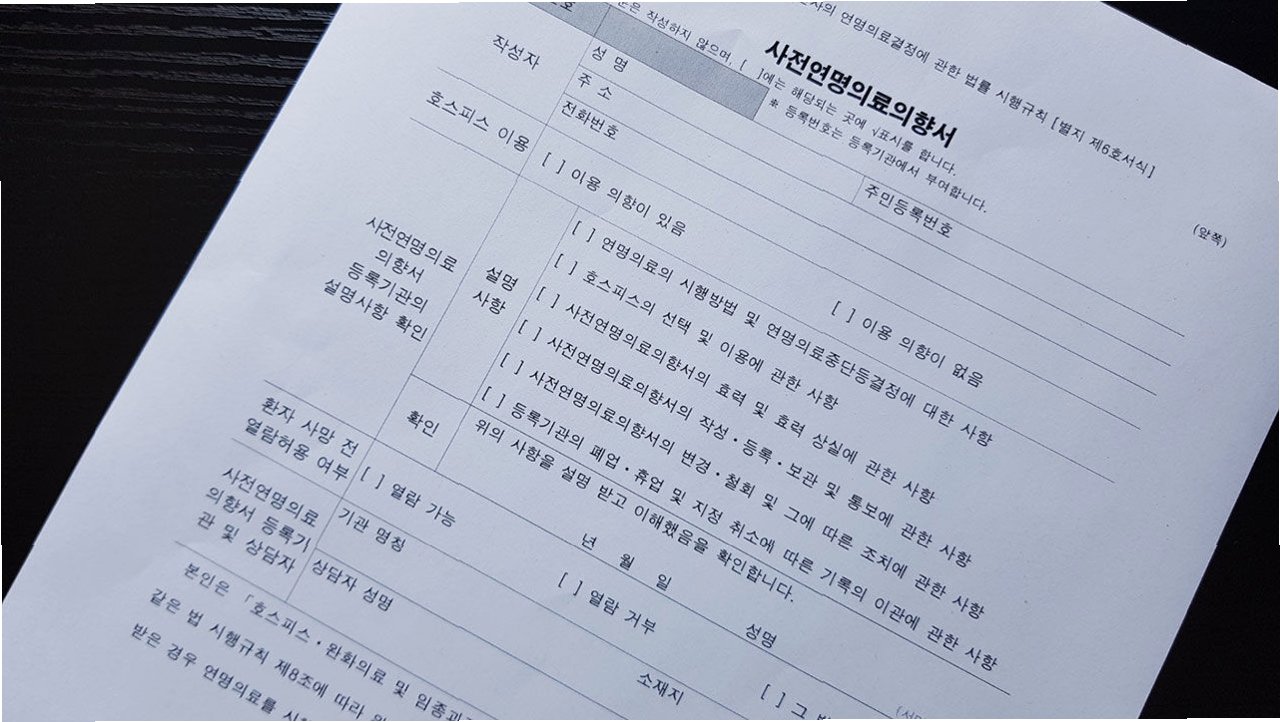 연명의료결정에 관한 법률 시행규칙 [별지 제6호서식]
(앞쪽)
사전연명의료의향서
※ 등록번호는 등록기관에서 부여합니다.
작성하지 않으며, [ ]에는 해당되는 곳에 √표시를 합니다.
작성자
성 명
주민등록번호
주 소
전화번호
호스피스 이용
[ ] 이용 의향이 있음
[ ] 이용 의향이 없음
사전연명의료
의향서
등록기관의
설명사항 확인
설명
사항
[ ] 연명의료의 시행방법 및 연명의료중단등결정에 대한 사항
[ ] 호스피스의 선택 및 이용에 관한 사항
[ ] 사전연명의료의향서의 효력 및 효력 상실에 관한 사항
[ ] 사전연명의료의향서의 작성·등록·보관 및 통보에 관한 사항
[ ] 사전연명의료의향서의 변경·철회 및 그에 따른 조치에 관한 사항
[ ] 등록기관의 폐업·휴업 및 지정 취소에 따른 기록의 이관에 관한 사항
확인
위의 사항을 설명 받고 이해했음을 확인합니다.
년 월 일
성명
환자 사망 전
열람허용 여부
[ ] 열람 가능
[ ] 열람 거부
[ ] 그
사전연명의료
의향서 등록기
관 및 상담자
기관 명칭
소재지
상담자 성명
본인은 「호스피스·완화의료 및
같은 법 시행규칙 제8조에 따라
받은 경우 연명의료를